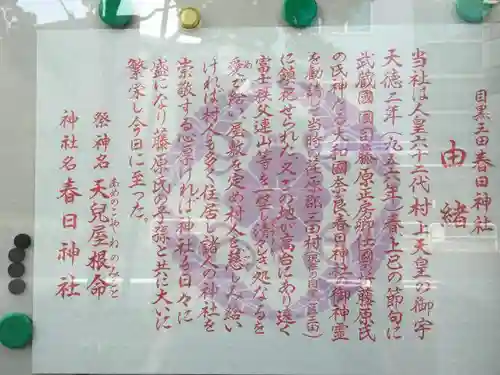 目黒三田春日神社
由緒
当社は人皇六十二代村上天皇の御宇
天徳二年(九五八年)春上巳の節句に
武蔵國國司藤原正房卿は國司藤原氏
の氏神なる大和國奈良春日神社の御神霊
を勧請し当時の荏原郡三田村(現在の目黒区三田)
に鎮祀せられた又この地が高台にあり遠く
富士秩父連山等を一望し清き処なるを
愛で給い屋敷を定め村人を慈しみ給い
ければ村人も多く住居し諸人の神社を
崇敬する心字ければ神社も日々に
盛になり藤原氏の子孫と共に大いに
繁栄し今日に至った。
祭神名 天兒屋根命
あめのこやねのみこと
神社名 春日神社